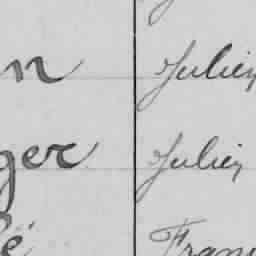 n Julien
ger Julien
é Fran